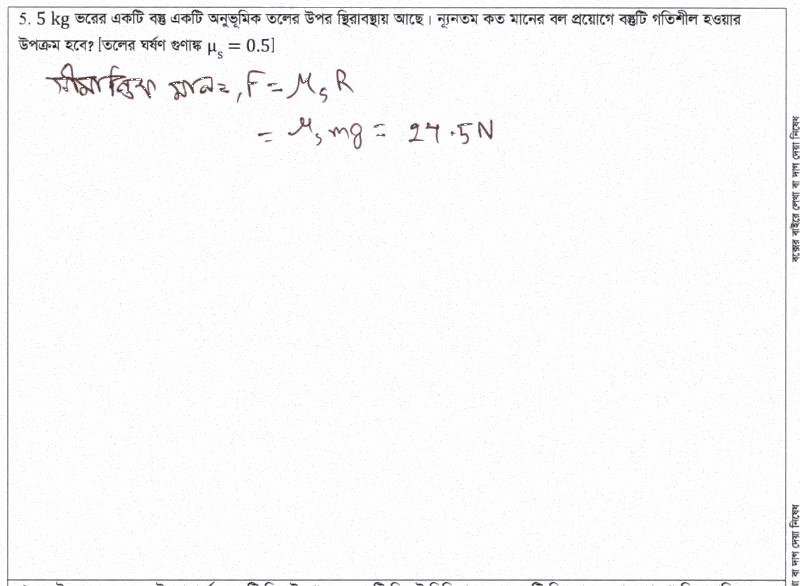 5. 5 kg ভরের একটি বস্তু একটি অনুভূমিক তলের উপর স্থিরাবস্থায় আছে। ন্যূনতম কত মানের বল প্রয়োগে বস্তুটি গতিশীল হওয়ার
উপক্রম হবে? [তলের ঘর্ষণ গুণাঙ্ক μₛ = 0.5]
সীমান্তিক মান, F = μₛ R
= μₛ mg = 24.5N
বক্সের বাইরে লেখা বা দাগ দেয়া নিষেধ
বা দাগ দেয়া নিষেধ